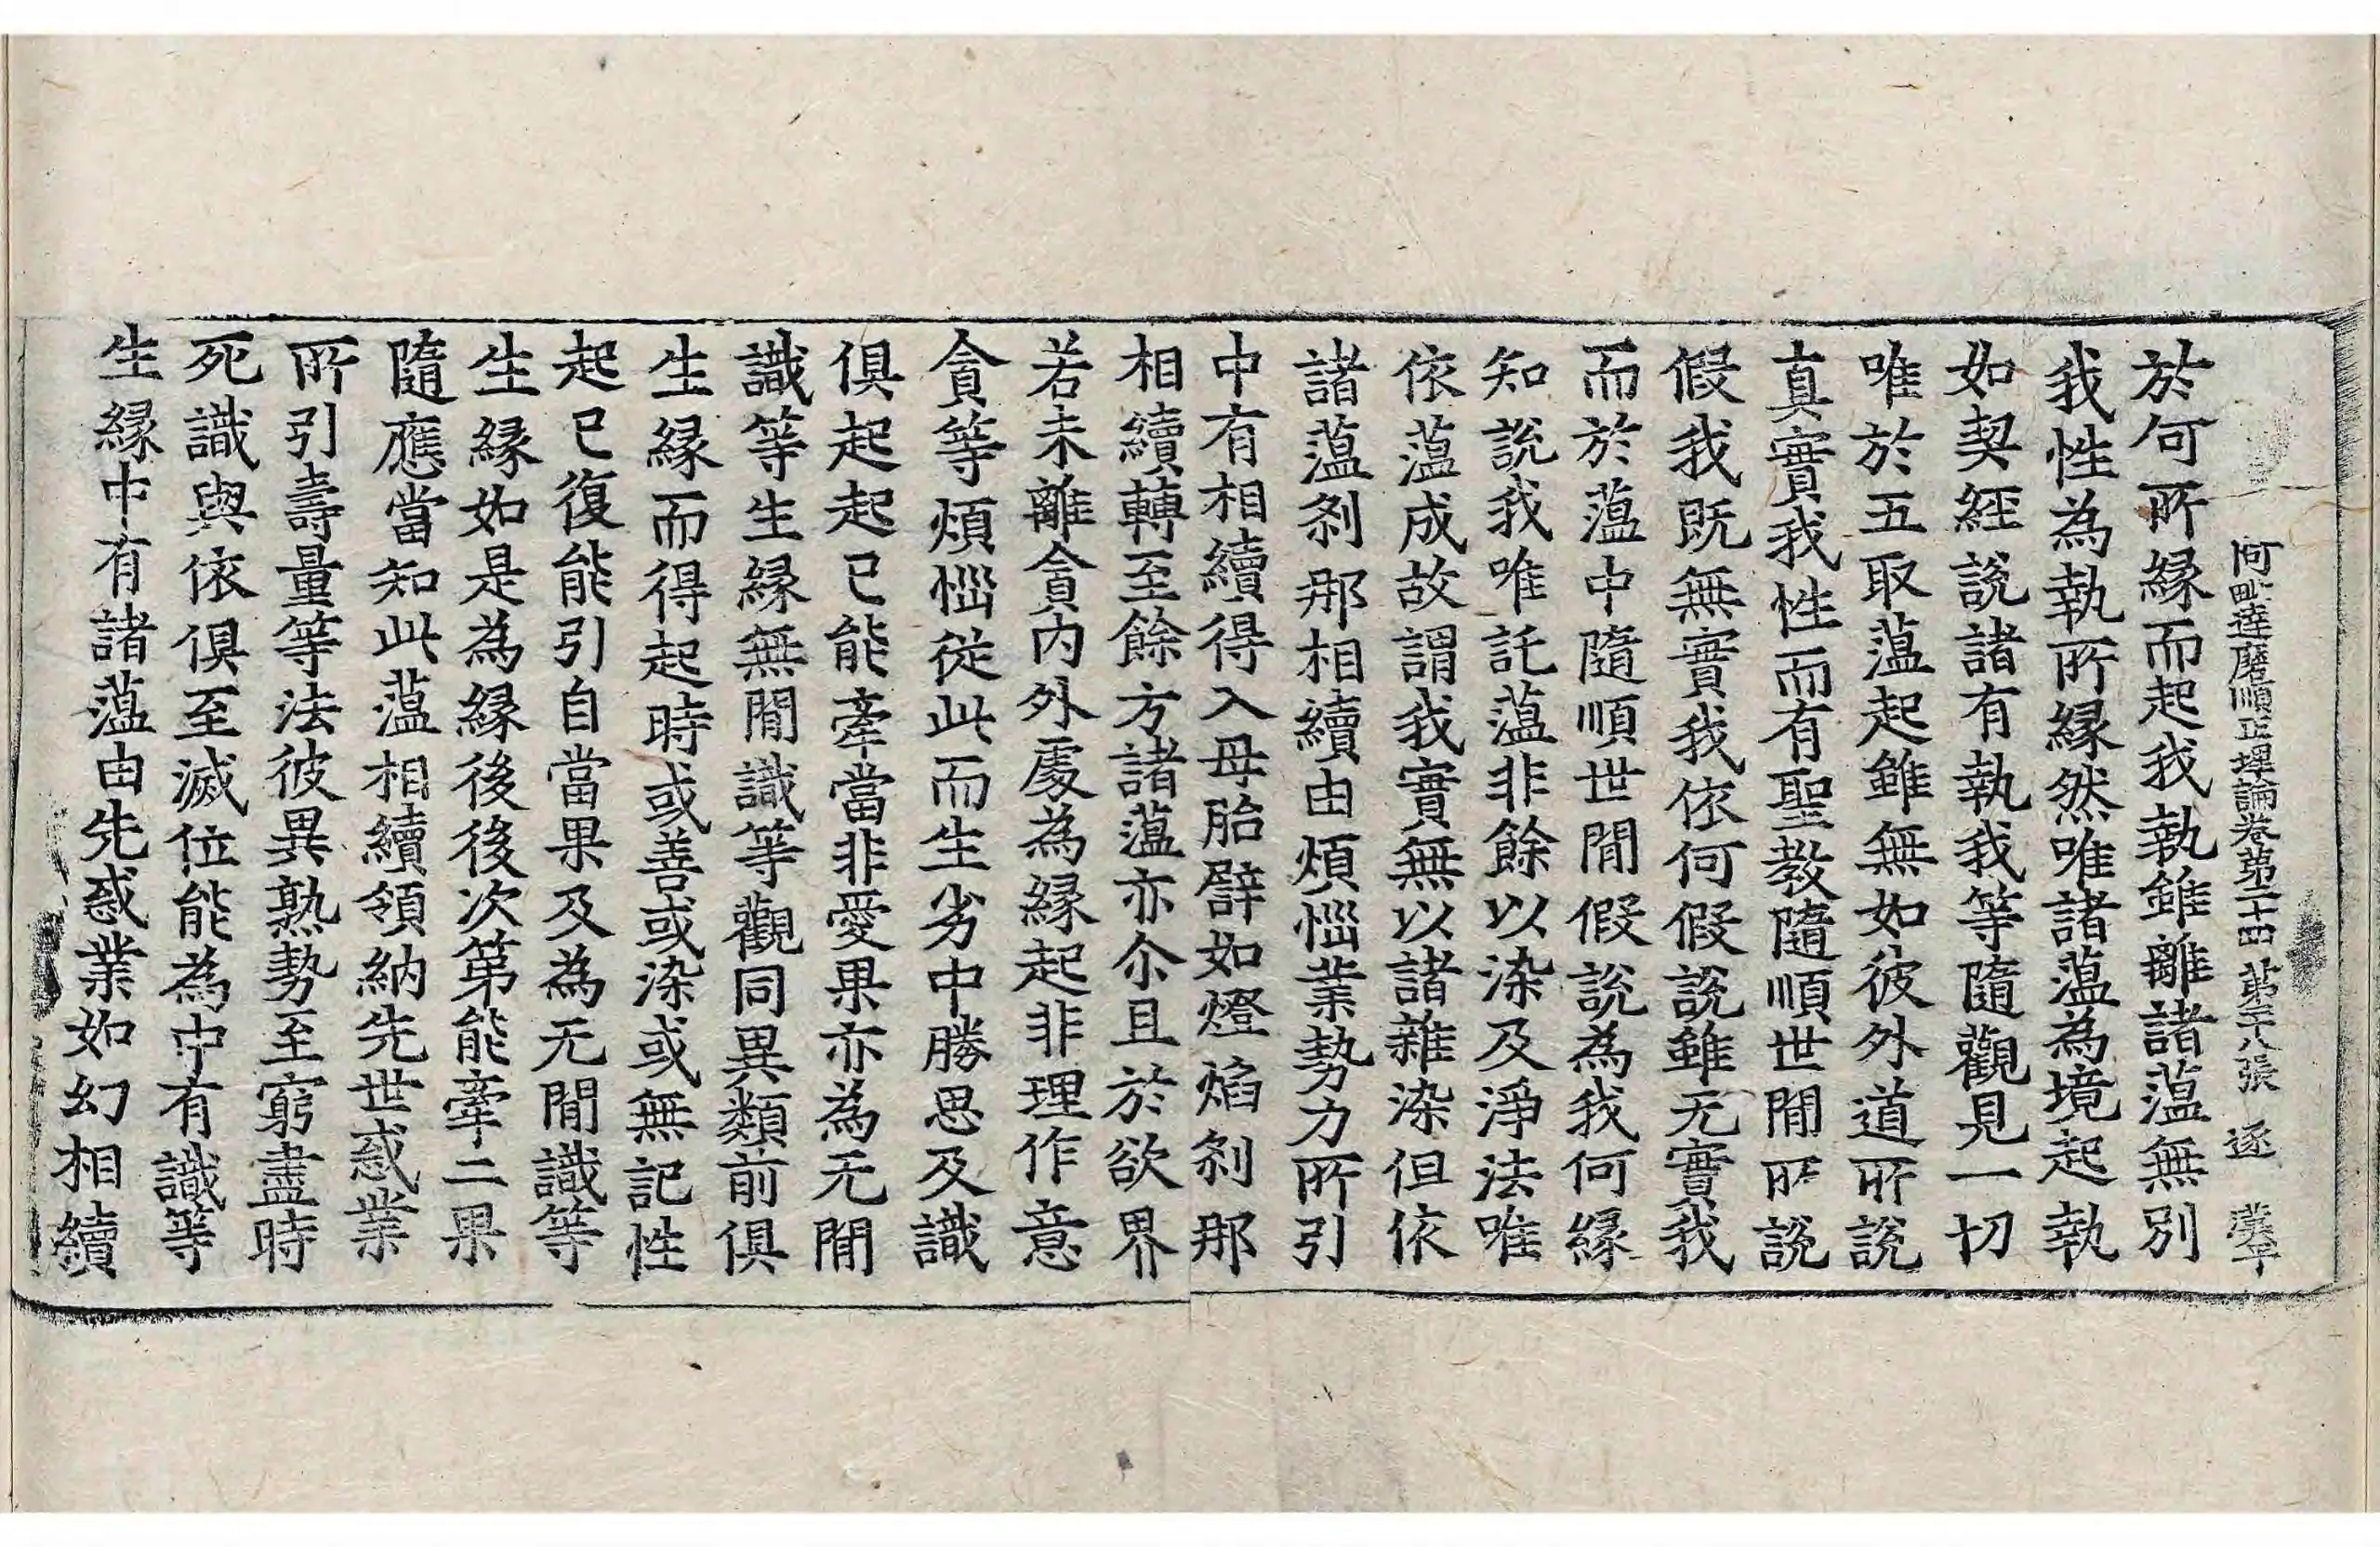 阿毗達磨順正理論卷第二十四 第十八張 逐
於何所縁而起我執雖離諸薀無別
我性為執所縁然唯諸薀為境起執
如契經說諸有執我等隨觀見一切
唯於五取薀起雖無如彼外道所說
真實我性而有聖教隨順世間所說
假我既無實我依何假說雖无實我
而於薀中隨順世間假說為我何縁
知說我唯託薀非餘以染及淨法唯
依薀成故謂我實無以諸雜染但依
諸薀剎那相續由煩惱業勢力所引
中有相續得入母胎譬如燈焰剎那
相續轉至餘方諸薀亦尒且於欲界
若未離貪內外處為縁起非理作意
貪等煩惱從此而生劣中勝思及識
俱起起已能牽當非愛果亦為无間
識等生縁無間識等觀同異類前俱
生縁而得起時或善或染或無記性
起已復能引自當果及為无間識等
生縁如是為縁後後次第能牽二果
隨應當知此薀相續領納先世惑業
所引壽量等法彼異熟勢至窮盡時
死識與依俱至滅位能為中有識等
生縁中有諸薀由先惑業如幻相續